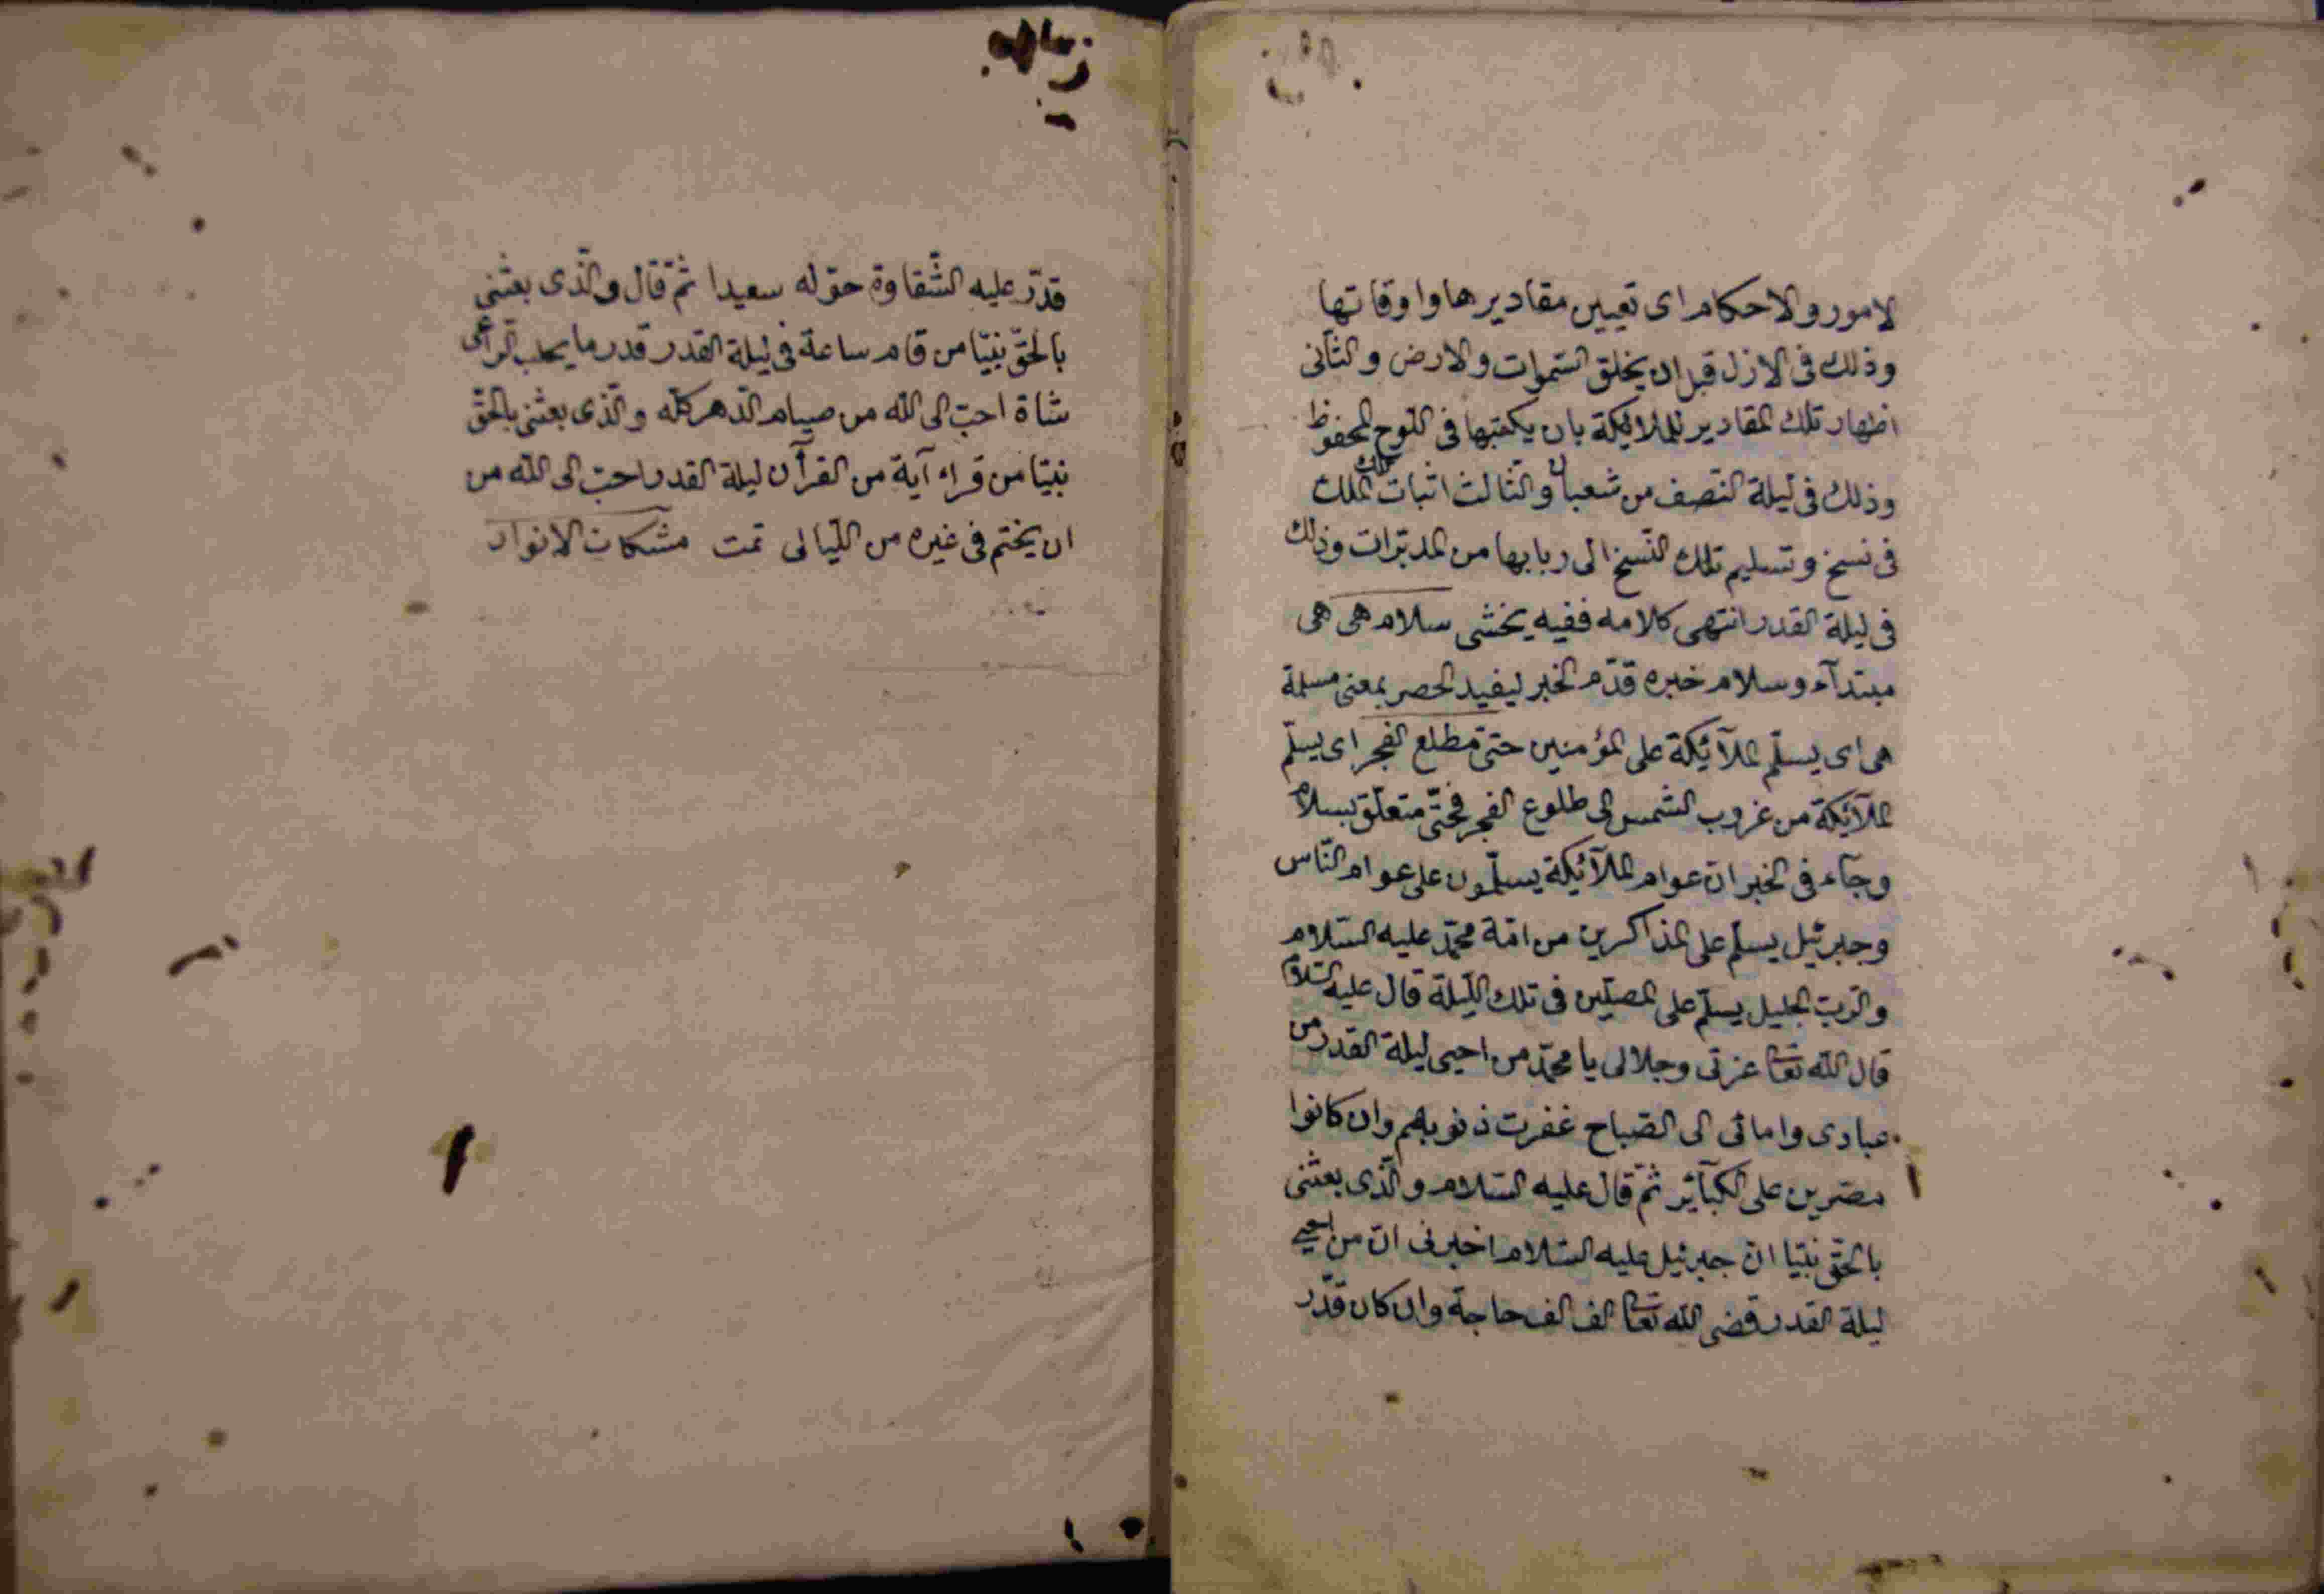 لامور والاحكام اى تعيين مقاديرها واوقاتها
وذلك فى الازل قبل ان يخلق السّموات والارض والثّانى
اظهار تلك المقادير للملائكة بان يكتبها فى اللّوح المحفوظ
وذلك فى ليلة النّصف من شعبان والثّالث اثبات تلك الملك
فى نسخ وتسليم تلك النّسخ الى ربابها من المدبّرات وذلك
فى ليلة القدر انتهى كلامه ففيه يخشى سلام هى هى
مبتدآء وسلام خبره قدّم الخبر ليفيد الحصر بمعنى مسلمة
هى اى يسلّم الملآئكة على المؤمنين حتّى مطلع الفجر اى يسلّم
الملآئكة من غروب الشّمس الى طلوع الفجر فحتّى متعلّق بسلام
وجآء فى الخبر انّ عوام الملآئكة يسلّمون على عوام النّاس
وجبرئيل يسلّم على الذاكرين من امّة محمّد عليه السّلام
والرّبّ الجليل يسلّم على المصلّين فى تلك اللّيلة قال عليه السّلام
قال اللّه تعا عزتى وجلالى يا محمّد من احيى ليلة القدر من
عبادى وامائى الى الصّباح غفرت ذنوبهم وان كانوا
مصرّين على الكبآئر ثمّ قال عليه السّلام والّذى بعثنى
بالحقّ نبيّا انّ جبرئيل عليه السّلام اخبرنى انّ من احيى
ليلة القدر قضى اللّه تعا الف الف حاجة وان كان قدّر
قدّر عليه الشّقاوة حوّله سعيدا ثمّ قال والّذى بعثنى
بالحقّ نبيّا من قام ساعة فى ليلة القدر قدر ما يحلب الرّاعى
شاة احبّ الى اللّه من صيام الدّهر كلّه والّذى بعثنى بالحقّ
نبيّا من قراء آية من القرآن ليلة القدر احبّ الى اللّه من
ان يختم فى غيره من اللّيالى تمت مشكات الانوار